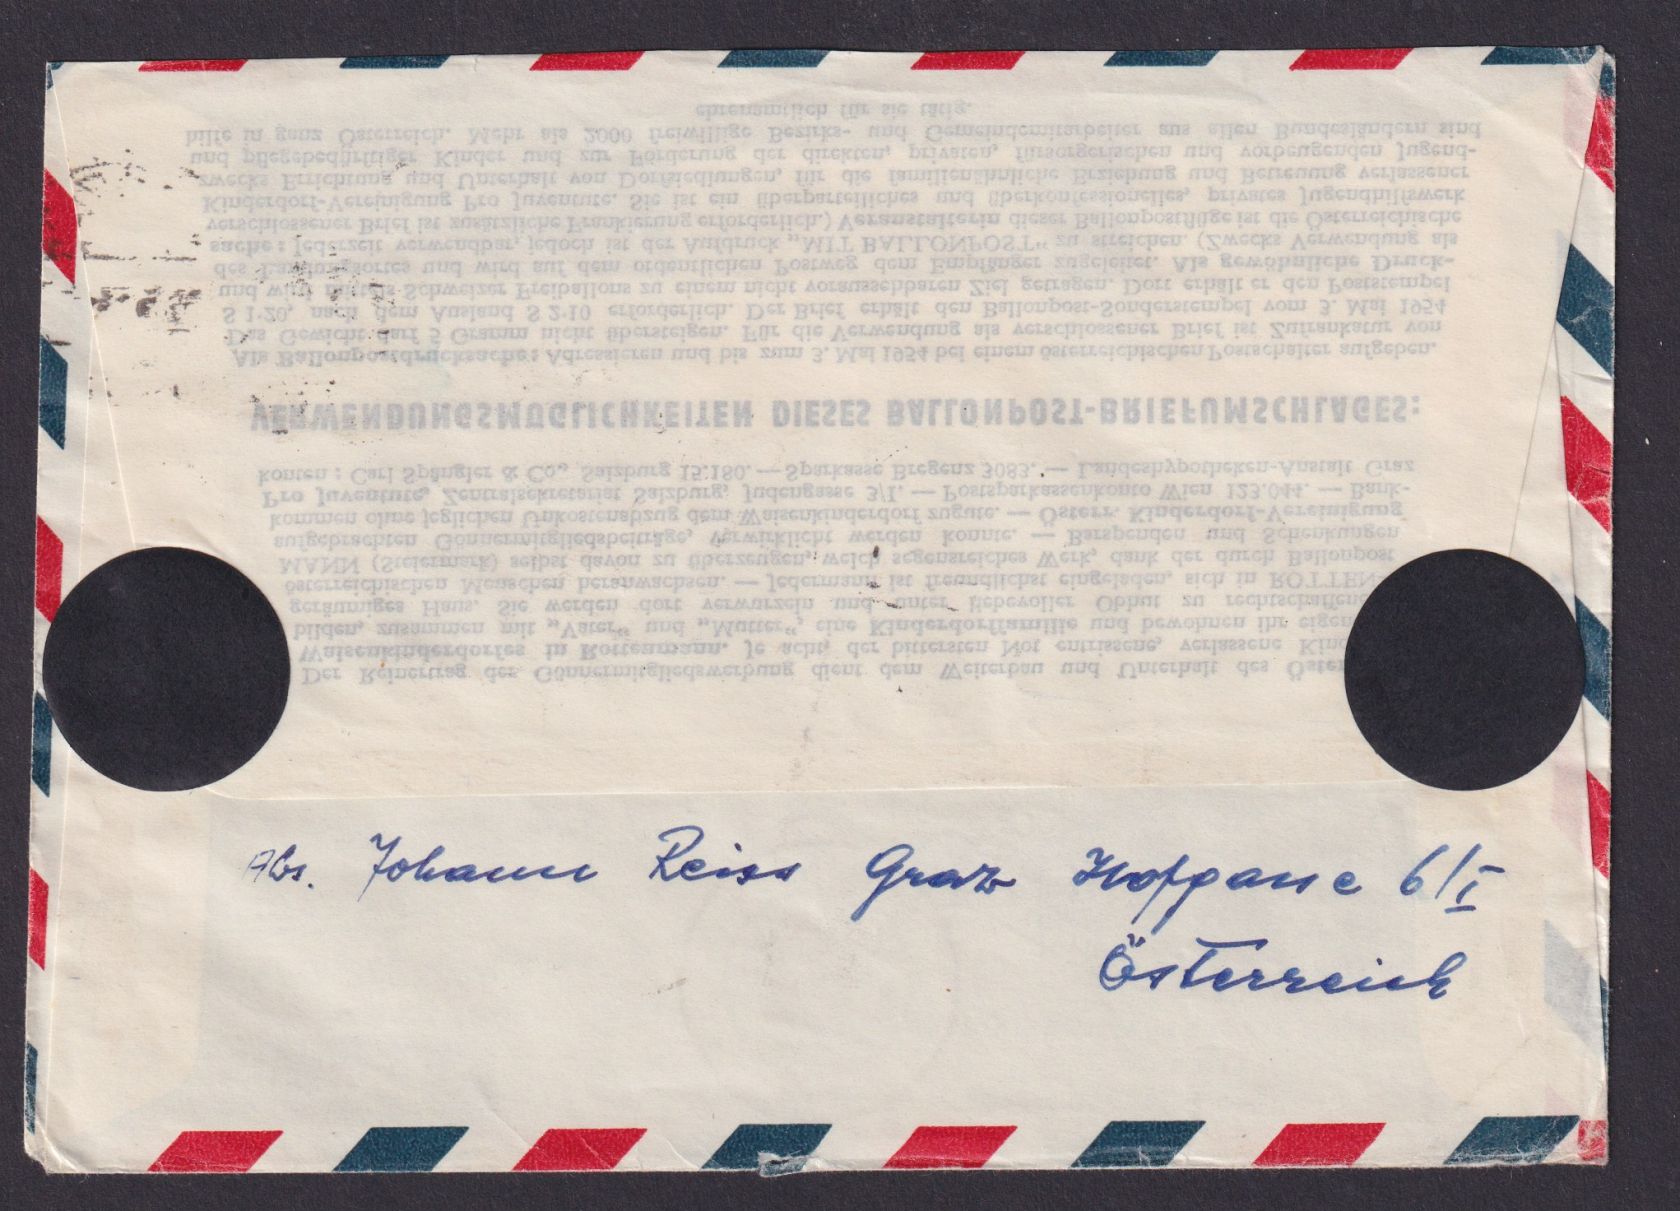 Der Reinertrag der Gönnermitgliedswerbung dient dem Weiterbau und Unterhalt des Öster
Waisenkinderdorfes in Rottenmann. Je acht, der bittersten Not entrissene, verlassene Kin
bilden, zusammen mit „Vater“ und „Mutter“, eine Kinderdorffamilie und bewohnen ihr eigen
geräumiges Haus. Sie werden dort verwurzeln und unter liebevoller Obhut zu rechtschaffene
österreichischen Menschen heranwachsen. — Jedermann ist freundlichst eingeladen, sich in ROTTEN-
MANN (Steiermark) selbst davon zu überzeugen, welch segensreiches Werk, dank der durch Ballonpost
aufgebrachten Gönnermitgliedsbeiträge, verwirklicht werden konnte. — Barspenden und Schenkungen
kommen ohne jeglichen Unkostenabzug dem Waisenkinderdorf zugute. — Österr. Kinderdorf-Vereinigung
Pro Juventute, Zentralsekretariat Salzburg, Judengasse 3/I. — Postsparkassenkonto Wien 123.044. — Bank-
konten: Carl Spängler & Co., Salzburg 15.180. — Sparkasse Bregenz 3083. — Landeshypotheken-Anstalt Graz
VERWENDUNGSMÖGLICHKEITEN DIESES BALLONPOST-BRIEFUMSCHLAGES:
Als Ballonpostdrucksache: Adressieren und bis zum 3. Mai 1954 bei einem österreichischen Postschalter aufgeben.
Das Gewicht darf 5 Gramm nicht übersteigen. Für die Verwendung als verschlossener Brief ist Zufrankatur von
S 1·20, nach dem Ausland S 2·10 erforderlich. Der Brief erhält den Ballonpost-Sonderstempel vom 3. Mai 1954
und wird mittels Schweizer Freiballons zu einem nicht voraussehbaren Ziel getragen. Dort erhält er den Poststempel
des Landungsortes und wird auf dem ordentlichen Postweg dem Empfänger zugeleitet. Als gewöhnliche Druck-
sache: Jederzeit verwendbar, jedoch ist der Aufdruck „MIT BALLONPOST“ zu streichen. (Zwecks Verwendung als
verschlossener Brief ist zusätzliche Frankierung erforderlich.) Veranstalterin dieser Ballonpostflüge ist die Österreichische
Kinderdorf-Vereinigung Pro Juventute. Sie ist ein überparteiliches und überkonfessionelles, privates Jugendhilfswerk
zwecks Errichtung und Unterhalt von Dorfsiedlungen, für die familienähnliche Erziehung und Betreuung verlassener
und pflegebedürftiger Kinder und zur Förderung der direkten, privaten, fürsorgerischen und vorbeugenden Jugend-
hilfe in ganz Österreich. Mehr als 2000 freiwillige Bezirks- und Gemeindemitarbeiter aus allen Bundesländern sind
ehrenamtlich für sie tätig.
Abs. Johann Reiss Graz Hofgasse 6/I
Österreich